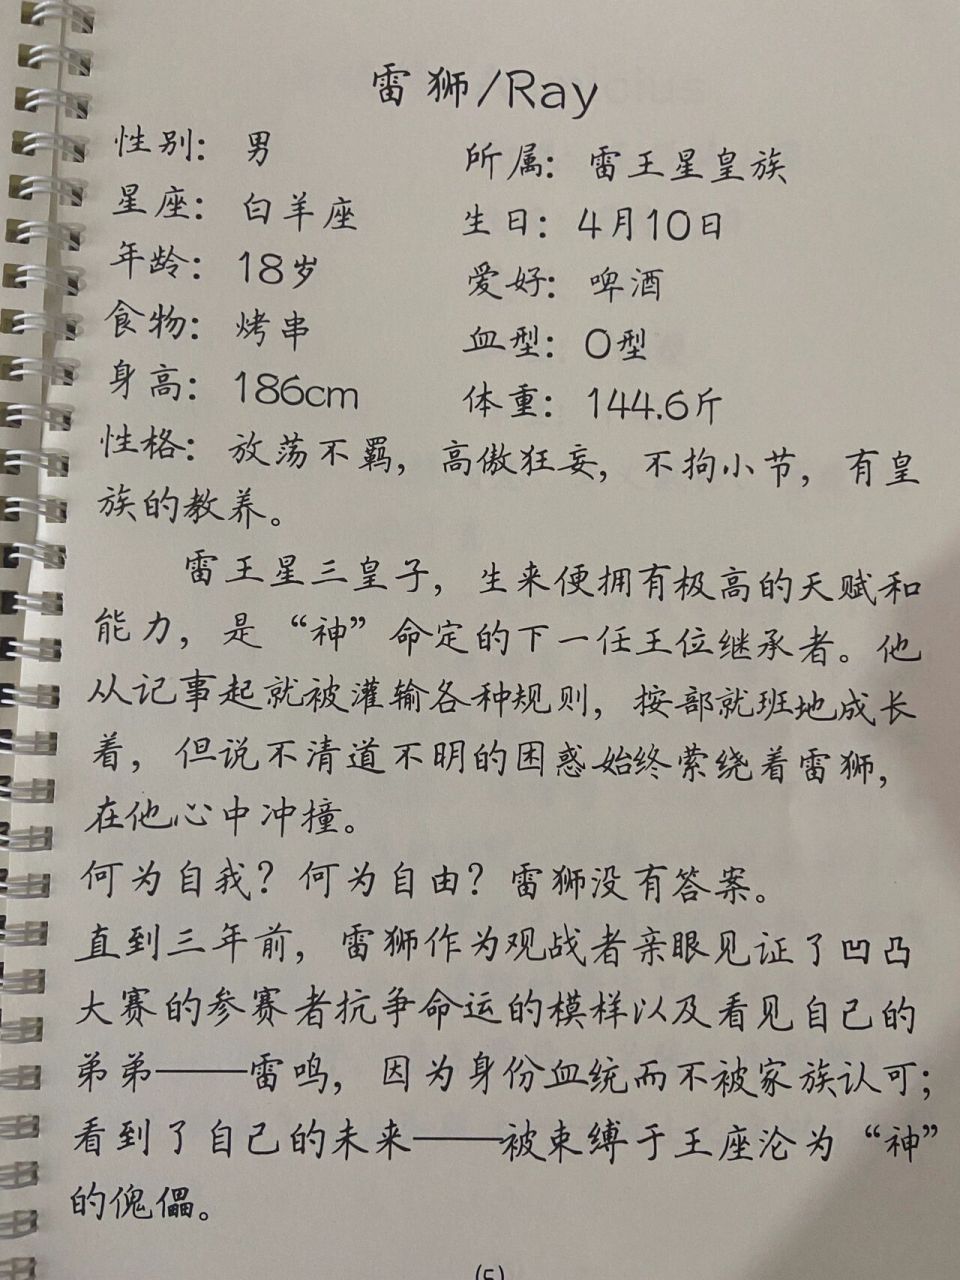 雷狮/Ray
性别：男 所属：雷王星皇族
星座：白羊座 生日：4月10日
年龄：18岁 爱好：啤酒
食物：烤串 血型：O型
身高：186cm 体重：144.6斤
性格：放荡不羁，高傲狂妄，不拘小节，有皇
族的教养。
雷王星三皇子，生来便拥有极高的天赋和
能力，是“神”命定的下一任王位继承者。他
从记事起就被灌输各种规则，按部就班地成长
着，但说不清道不明的困惑始终萦绕着雷狮，
在他心中冲撞。
何为自我？何为自由？雷狮没有答案。
直到三年前，雷狮作为观战者亲眼见证了凹凸
大赛的参赛者抗争命运的模样以及看见自己的
弟弟——雷鸣，因为身份血统而不被家族认可；
看到了自己的未来——被束缚于王座沦为“神”
的傀儡。
(5)